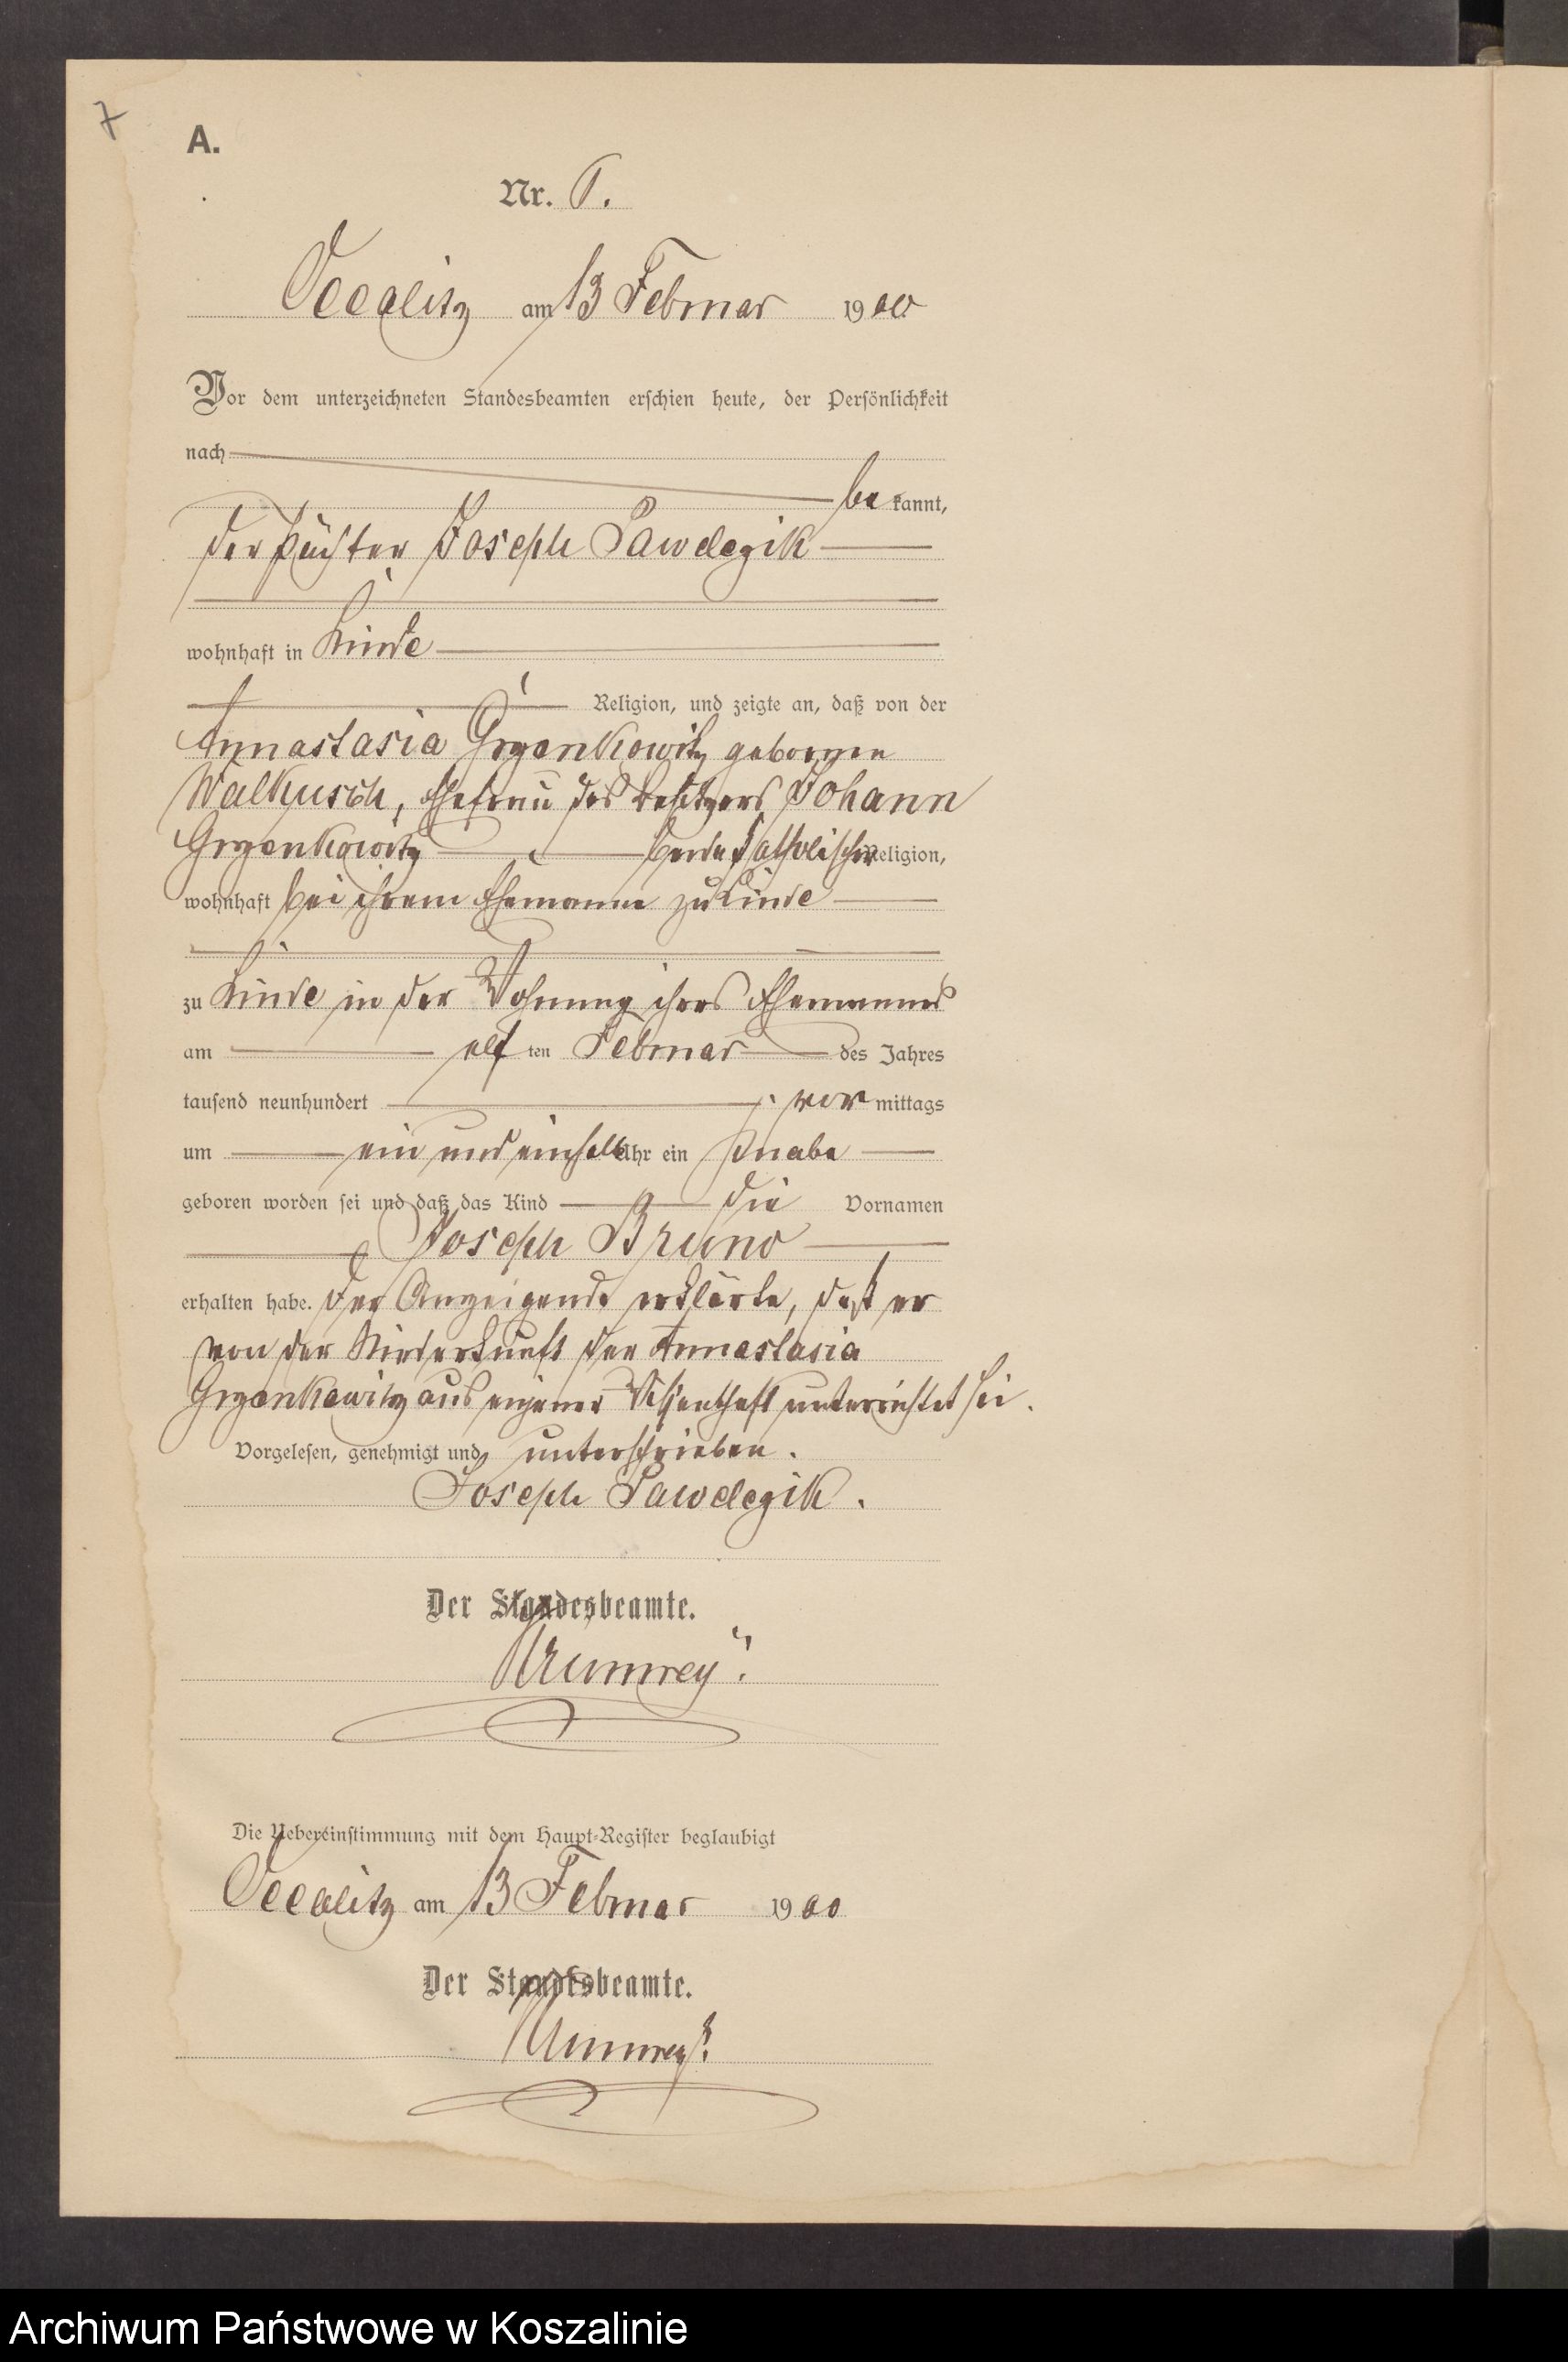 7
A.
Nr. 6.
Occalitz am 13 Februar 1900
Vor dem unterzeichneten Standesbeamten erschien heute, der Persönlichkeit
nach
bekannt,
der Pächter Joseph Pawelczik
wohnhaft in Linde
Religion, und zeigte an, daß von der
Annastasia Grzenkowitz geborenen
Walkusch, Ehefrau des Besitzers Johann
Grzenkowitz beide katholischer Religion,
wohnhaft bei ihrem Ehemanne zu Linde
zu Linde in der Wohnung ihres Ehemannes
am elf ten Februar des Jahres
tausend neunhundert vor mittags
um ein und einhalb Uhr ein Knabe
geboren worden sei und daß das Kind die Vornamen
Joseph Bruno
erhalten habe. Der Anzeigende erklärte, daß er
von der Niederkunft der Annastasia
Grzenkowitz aus eigener Wissenschaft unterrichtet sei.
Vorgelesen, genehmigt und unterschrieben.
Joseph Pawelczik.
Der Standesbeamte.
Krumrey.
Die Uebereinstimmung mit dem Haupt-Register beglaubigt
Occalitz am 13 Februar 1900
Der Standesbeamte.
Krumrey.
Archiwum Państwowe w Koszalinie